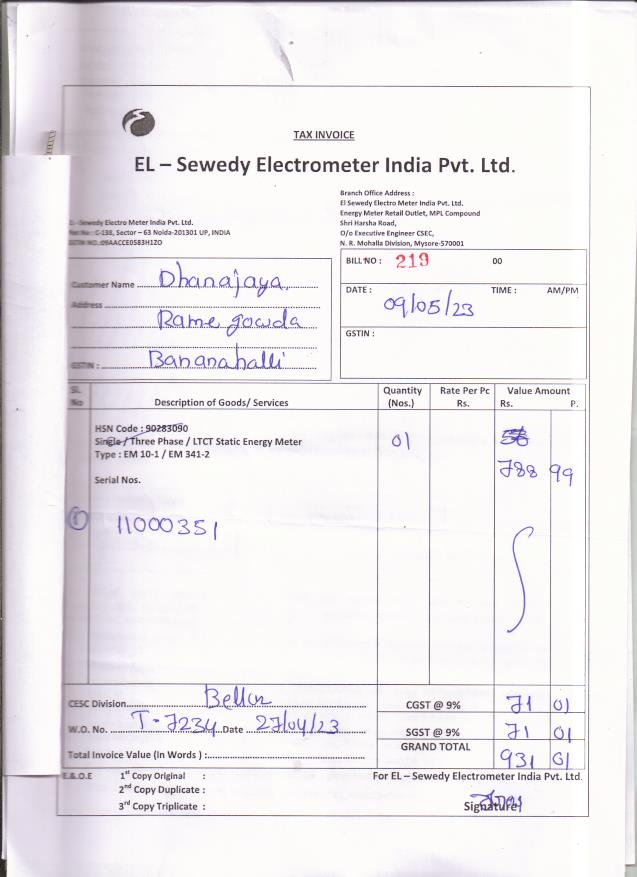 TAX INVOICE
EL – Sewedy Electrometer India Pvt. Ltd.
Branch Office Address :
El Sewedy Electro Meter India Pvt. Ltd.
Energy Meter Retail Outlet, MPL Compound
Shri Harsha Road,
O/o Executive Engineer CSEC,
N. R. Mohalla Division, Mysore-570001
Sewedy Electro Meter India Pvt. Ltd.
C-138, Sector – 63 Noida-201301 UP, INDIA
GSTIN NO.:09AACCE0583H1ZO
BILL NO : 219 00
DATE : 09/05/23 TIME : AM/PM
GSTIN :
Customer Name Dhanajaya
Address
Rame gowda
GSTIN : Bananahalli
Sl. No Description of Goods/ Services Quantity (Nos.) Rate Per Pc Rs. Value Amount Rs. P.
HSN Code : 90283090
Single / Three Phase / LTCT Static Energy Meter 01
Type : EM 10-1 / EM 341-2
788 99
Serial Nos.
① 11000351
CESC Division Bellur
CGST @ 9% 71 01
W.O. No. T-7234 Date 27/04/23
SGST @ 9% 71 01
GRAND TOTAL 931 01
Total Invoice Value (In Words ) :
E.& O.E 1st Copy Original :
For EL – Sewedy Electrometer India Pvt. Ltd.
2nd Copy Duplicate :
3rd Copy Triplicate :
Signature